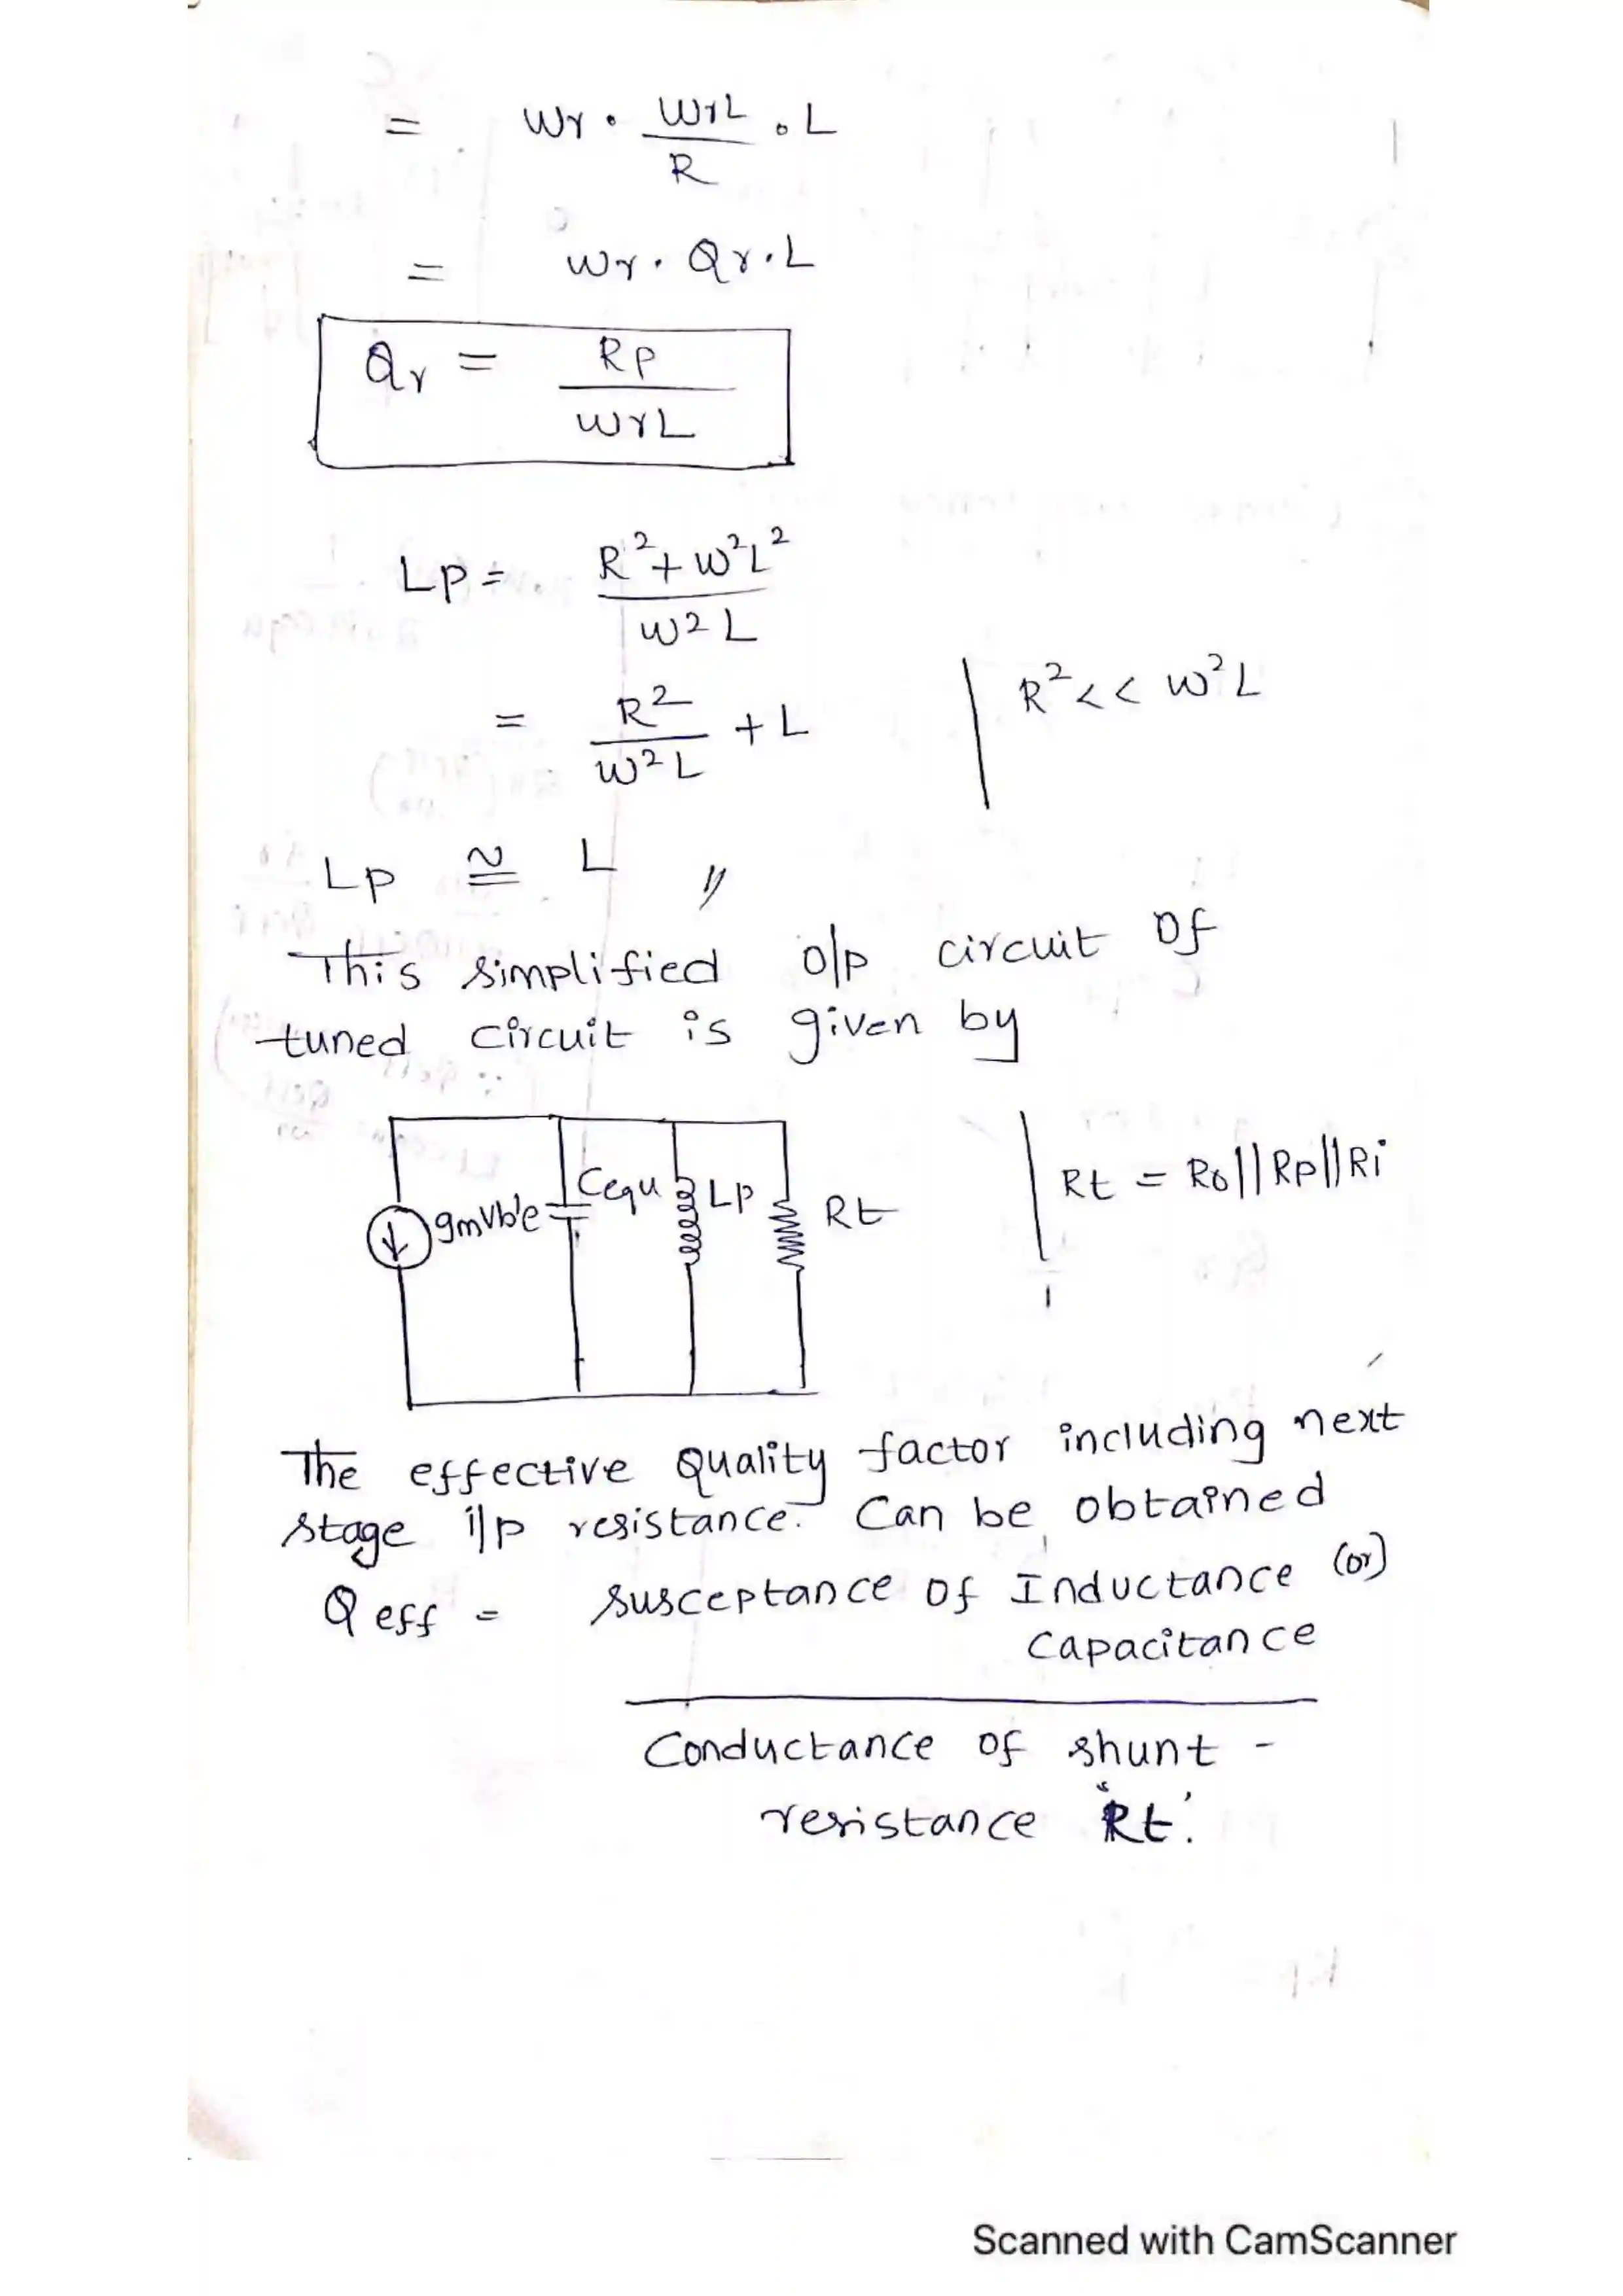 = Wr . WrL/R . L
= Wr . Qr . L
Qr = Rp/WrL
Lp = R²+W²L²/W²L
= R²/W²L + L | R² << W²L
Lp ≅ L "
This simplified o/p circuit of
tuned circuit is given by
gmVb'e Cequ Lp Rt | Rt = Ro||Rp||Ri
The effective Quality factor including next
stage i/p resistance. Can be obtained
Qeff = Susceptance of Inductance (or)
Capacitance
Conductance of shunt -
resistance 'Rt'.
Scanned with CamScanner